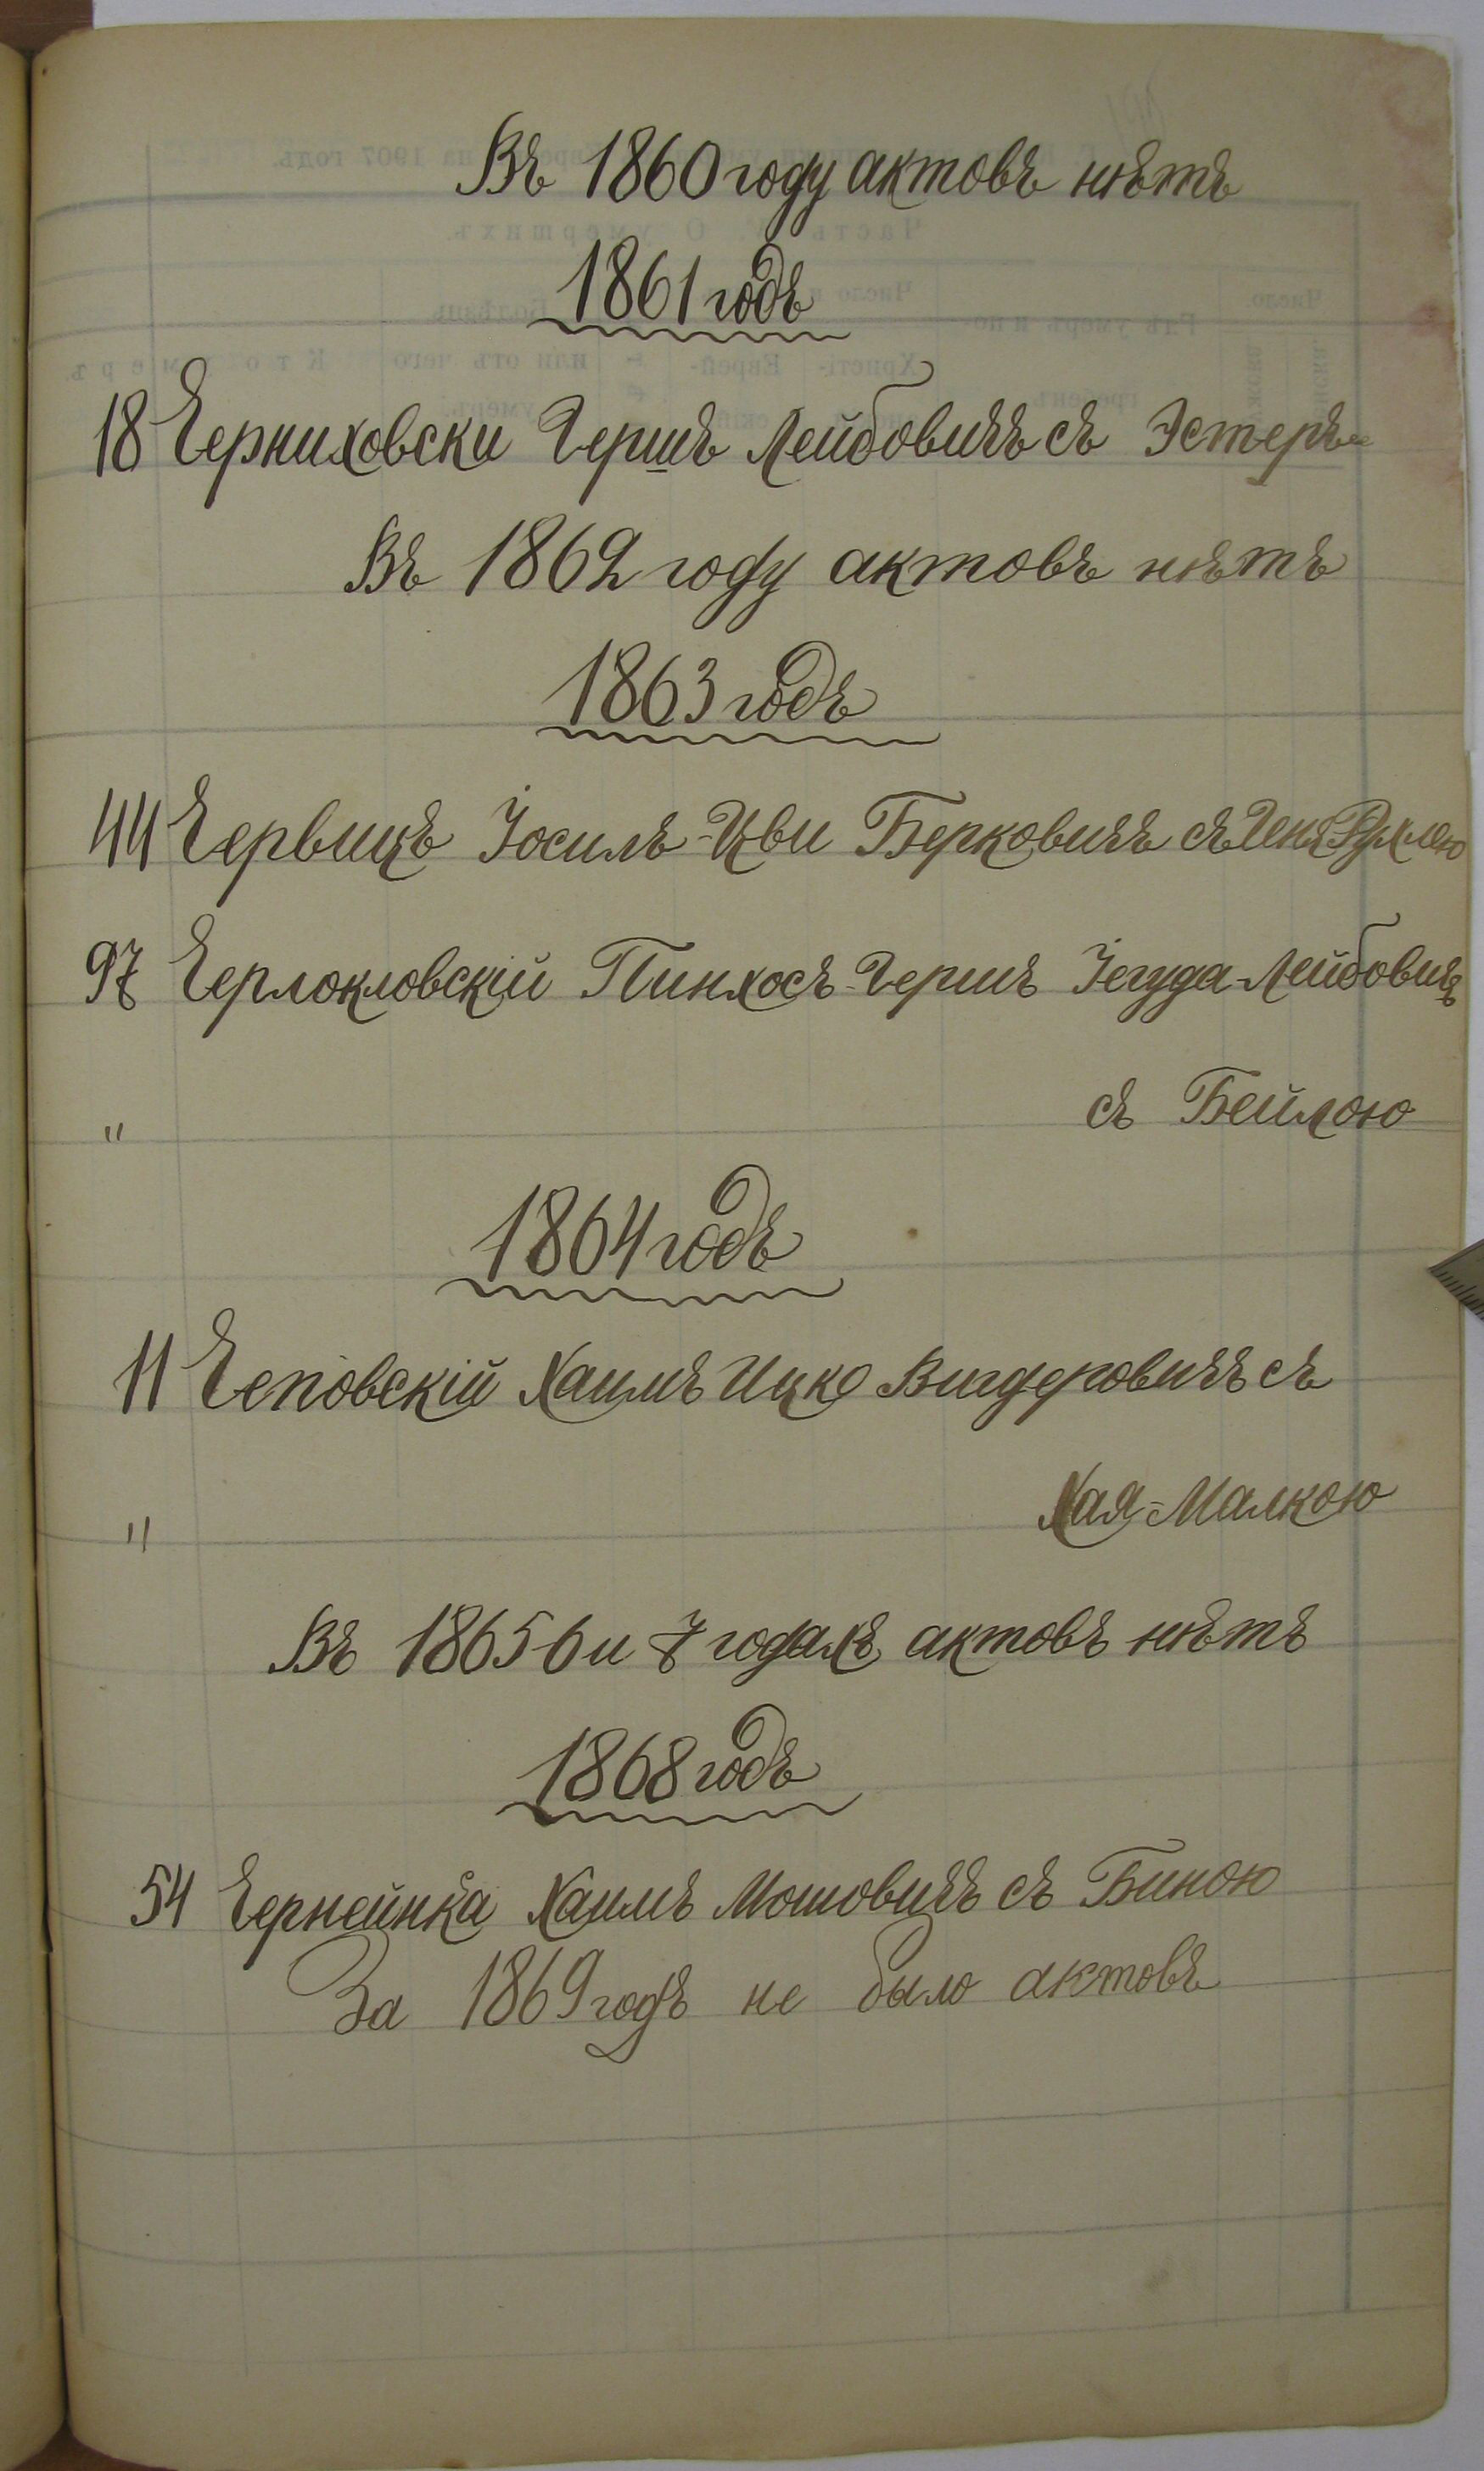 Въ 1860 году актовъ нѣтъ
1861 годъ
18 Черниховски Гершъ Лейбовичъ съ Эстеръ
Въ 1862 году актовъ нѣтъ
1863 годъ
44 Червицъ Іосилъ-Цви Берковичъ съ Рухлею
97 Черлокловскій Пинхосъ-Гершъ Іегуда-Лейбовичъ
" съ Бейлою
1864 годъ
11 Чеповскій Хаимъ Ицко Вигдеровичъ съ
" Хая-Малкою
Въ 1865 6 и 7 годахъ актовъ нѣтъ
1868 годъ
54 Чернейнка Хаимъ Мошовичъ съ Биною
За 1869 годъ не было актовъ